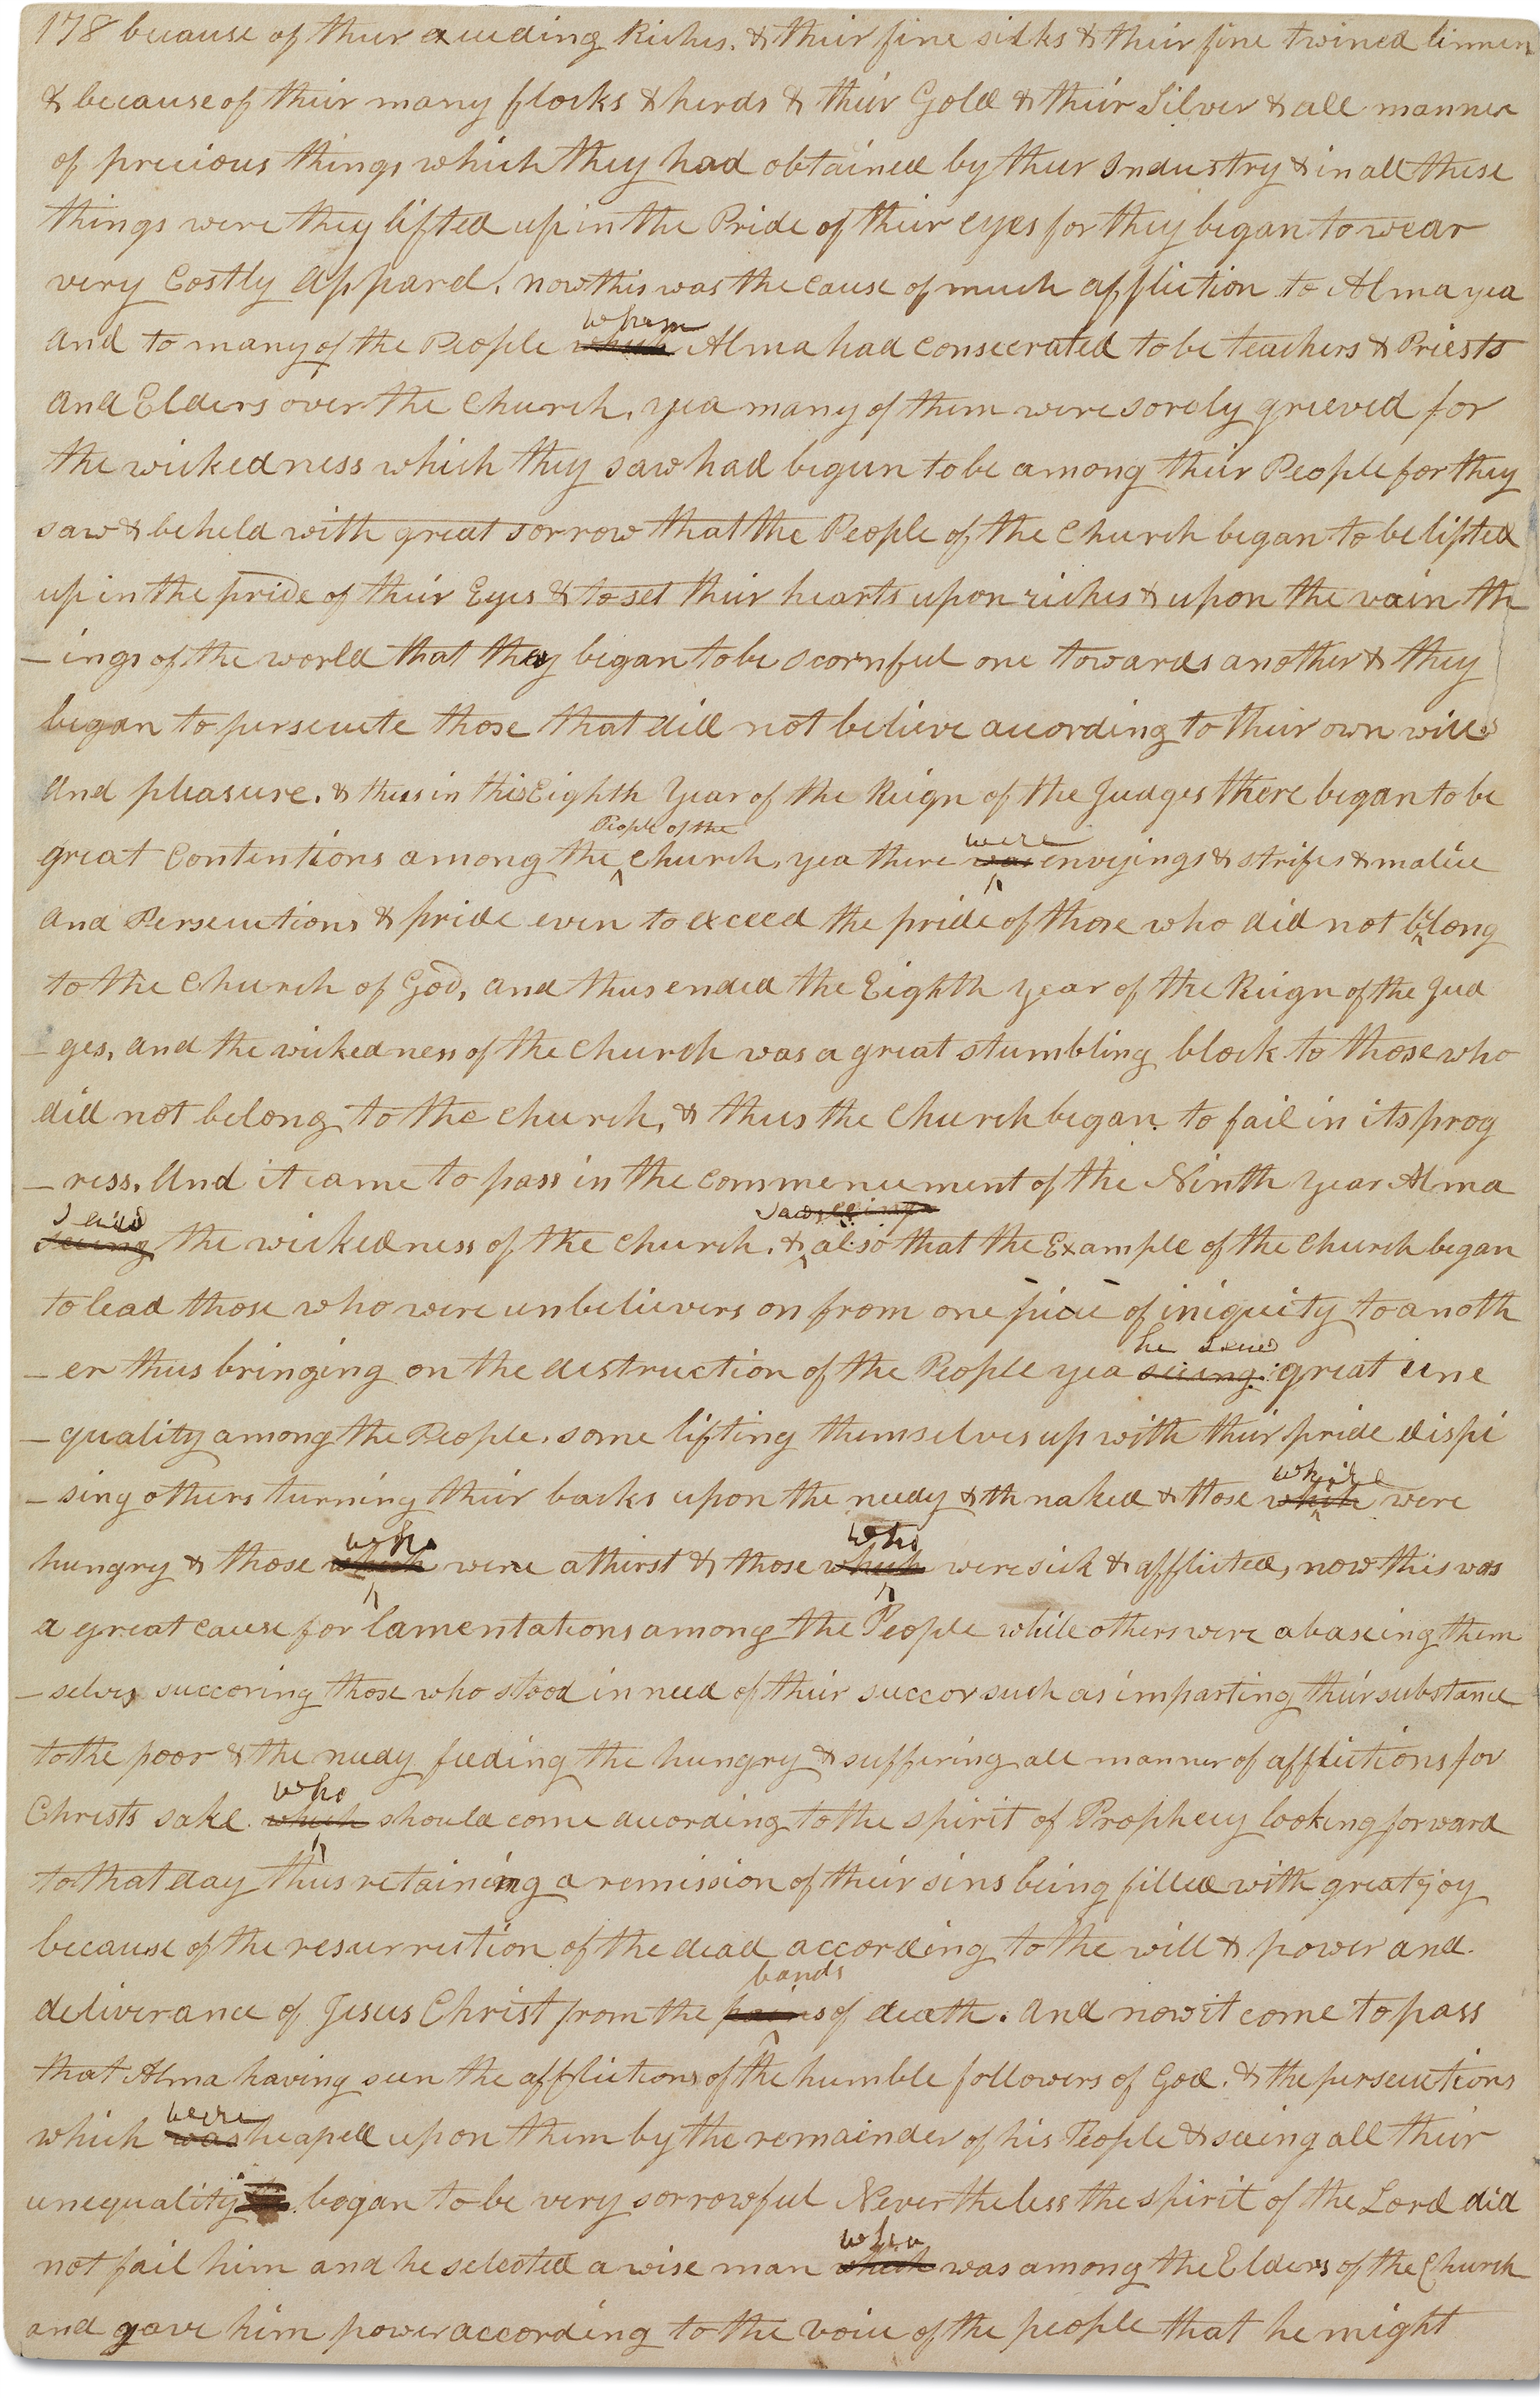 178 because of their exceeding Riches. & their fine silks & their fine twined linnen
& because of their many flocks & herds & their Gold & their Silver & all manner
of precious things which they had obtained by their Industry & in all these
things were they lifted up in the Pride of their eyes for they began to wear
very Costly apparel, now this was the cause of much affliction to Alma yea
whom
and to many of the People which Alma had consecrated to be teachers & Priests
and Elders over the Church, yea many of them were sorely grieved for
the wickedness which they saw had begun to be among their People for they
saw & beheld with great sorrow that the People of the Church began to be lifted
up in the pride of their Eyes & to set their hearts upon riches & upon the vain th
–ings of the world that they began to be scornful one towards another & they
began to persecute those that did not believe according to their own will
and pleasure. & thus in this Eighth Year of the Reign of the Judges there began to be
People of the were
great Contentions among the ^ Church, yea there was envyings & strifes & malice
and Persecutions & pride even to exceed the pride of those who did not belong
to the Church of God, and thus ended the Eighth year of the Reign of the Jud
–ges, and the wickedness of the Church was a great stumbling block to those who
did not belong to the church, & thus the Church began to fail in its prog
–ress. And it came to pass in the commencement of the Ninth Year Alma
seeing the wickedness of the church. & ^ also that the Example of the Church began
to lead those who were unbelievers on from one piece of iniquity to anoth
he
–er thus bringing on the destruction of the People yea seeing great une
–quality among the People. some lifting themselves up with their pride dispi
–sing others turning their backs upon the needy & th naked & those which were
who who
hungry & those which were athirst & those which were sick & afflicted, now this was
a great cause for lamentations among the People while others were abaseing them
–selves succoring those who stood in need of their succor such as imparting their substance
to the poor & the needy feeding the hungry & suffering all manner of afflictions for
who
Christs sake which should come according to the spirit of Prophecy looking forward
to that day thus retaining a remission of their sins being filled with great joy
because of the resurrection of the dead according to the will & power and
bands
deliverance of Jesus Christ from the pains of death. And now it come to pass
that Alma having seen the afflictions of the humble followers of God. & the persecutions
were
which was heaped upon them by the remainder of his People & seeing all their
unequality began to be very sorrowful Nevertheless the spirit of the Lord did
who
not fail him and he selected a wise man which was among the Elders of the Church
and gave him power according to the voice of the people that he might